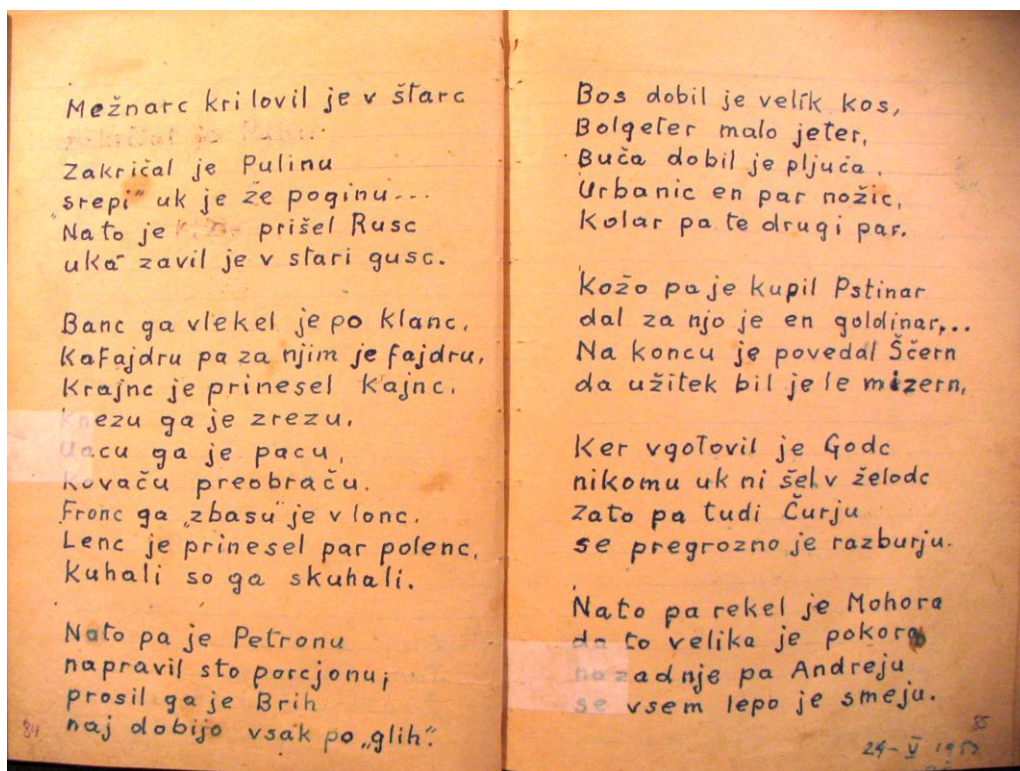 Mežnarc kri lovil je v štarc
Zakričal je Pulinu
"srepi" uk je že poginu...
Nato je prišel Rusc
uka zavil je v stari gusc.
Banc ga vlekel je po klanc.
Kafajdru pa za njim je fajdru.
Krajnc je prinesel kajnc.
Knezu ga je zrezu.
Vacu ga je pacu,
Kovaču preobraču.
Fronc ga „zbasu" je v lonc.
Lenc je prinesel par polenc.
Kuhali so ga skuhali.
Nato pa je Petronu
napravil sto porcjonu;
prosil ga je Brih
naj dobijo vsak po „glih".
84
Bos dobil je velik kos,
Bolgeter malo jeter,
Buča dobil je pljuča.
Urbanic en par nožic,
Kolar pa te drugi par.
Kožo pa je kupil Pstinar
dal za njo je en goldinar,...
Na koncu je povedal Ščern
da užitek bil je le mizern,
Ker vgotovil je Godc
nikomu uk ni šel v želodc
Zato pa tudi Čurju
se pregrozno je razburju.
Nato pa rekel je Mohora
da to velika je pokora
nazadnje pa Andreju
se vsem lepo je smeju.
85
24-V